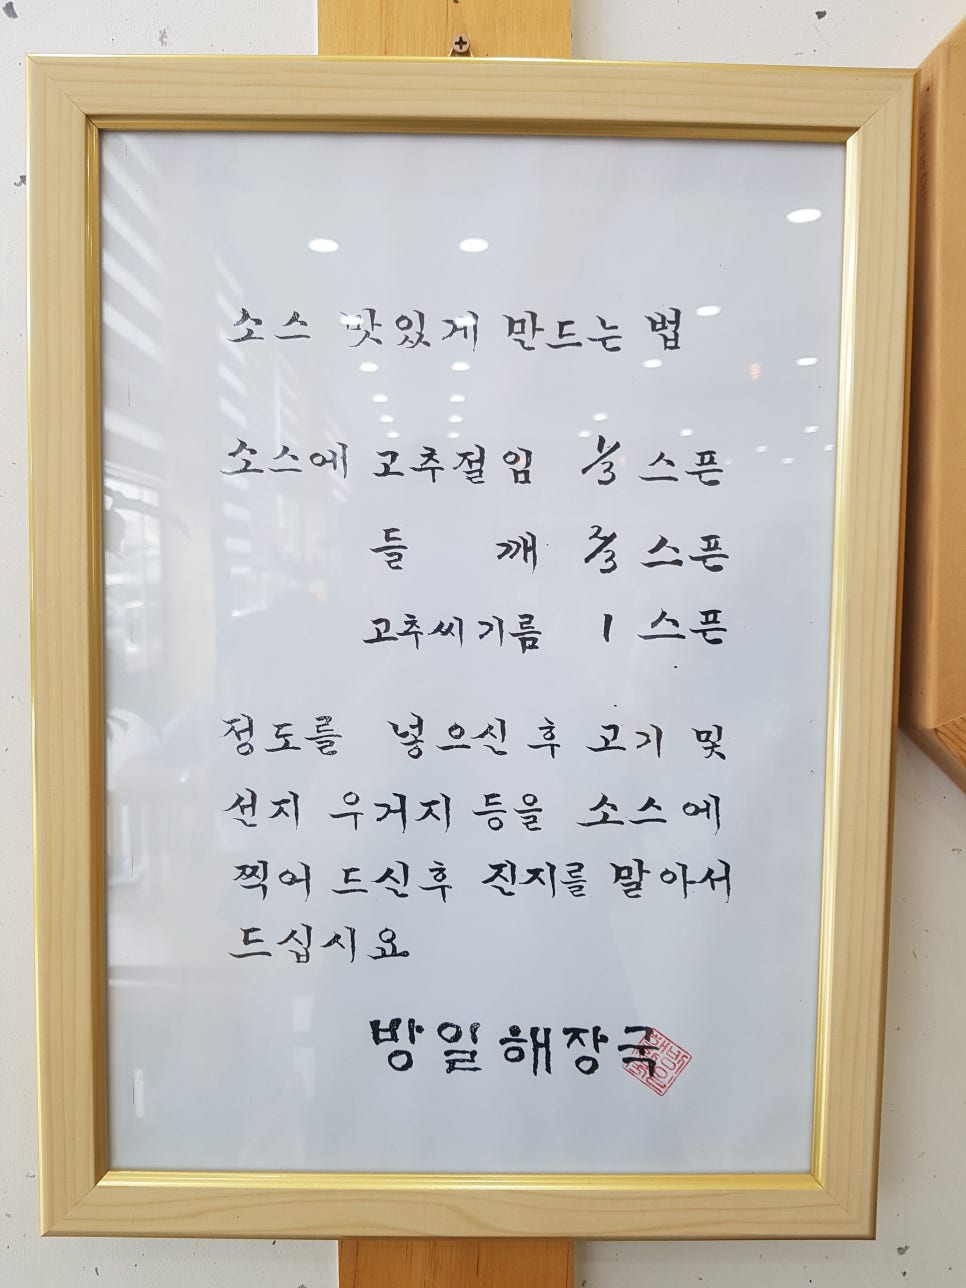 소스 맛있게 만드는 법
소스에 고추절임 1/3 스픈
들 깨 2/3 스픈
고추씨기름 1 스픈
정도를 넣으신 후 고기 및
선지 우거지 등을 소스에
찍어 드신후 진지를 말아서
드십시요
방일해장국